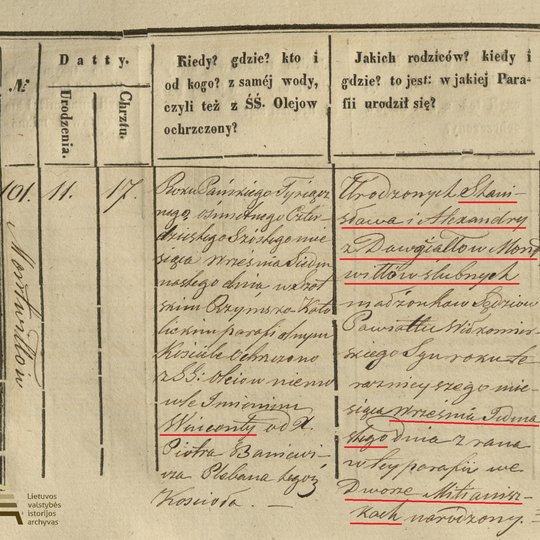 №
Datty.
Urodzenia.
Chrztu.
Kiedy? gdzie? kto i
od kogo? z saméj wody,
czyli też z ŚŚ. Olejow
ochrzczony?
Jakich rodziców? kiedy i
gdzie? to jest: w jakiej Para-
fii urodził się?
101.
Montwiłłow
11.
17.
Roku Pańskiego Tysiącz
nego ośmsetnego Czter
dziestego Szóstego mie
siąca Września Siedm
nastego dnia w
skim Rzymsko Kato
lickim parafialnym
Kościele Ochrzczono
z SS: olejow niemo
wle Imieniem
Wincenty od X.
Piotra Baniewi
cza Plebana tegoż
Kościoła. —
Urodzonych Stani-
sława i Alexandry
z Dowgiałłow Mont
wiłłów ślubnych
małżonkow Sędziow
Powiatu Wiłkomir
skiego Syn roku te
raznieyszego mie
siąca Września
dnia z rana
w tey parafii we
Dworze Milianisz
kach narodzony.
Lietuvos
valstybės
istorijos
archyvas